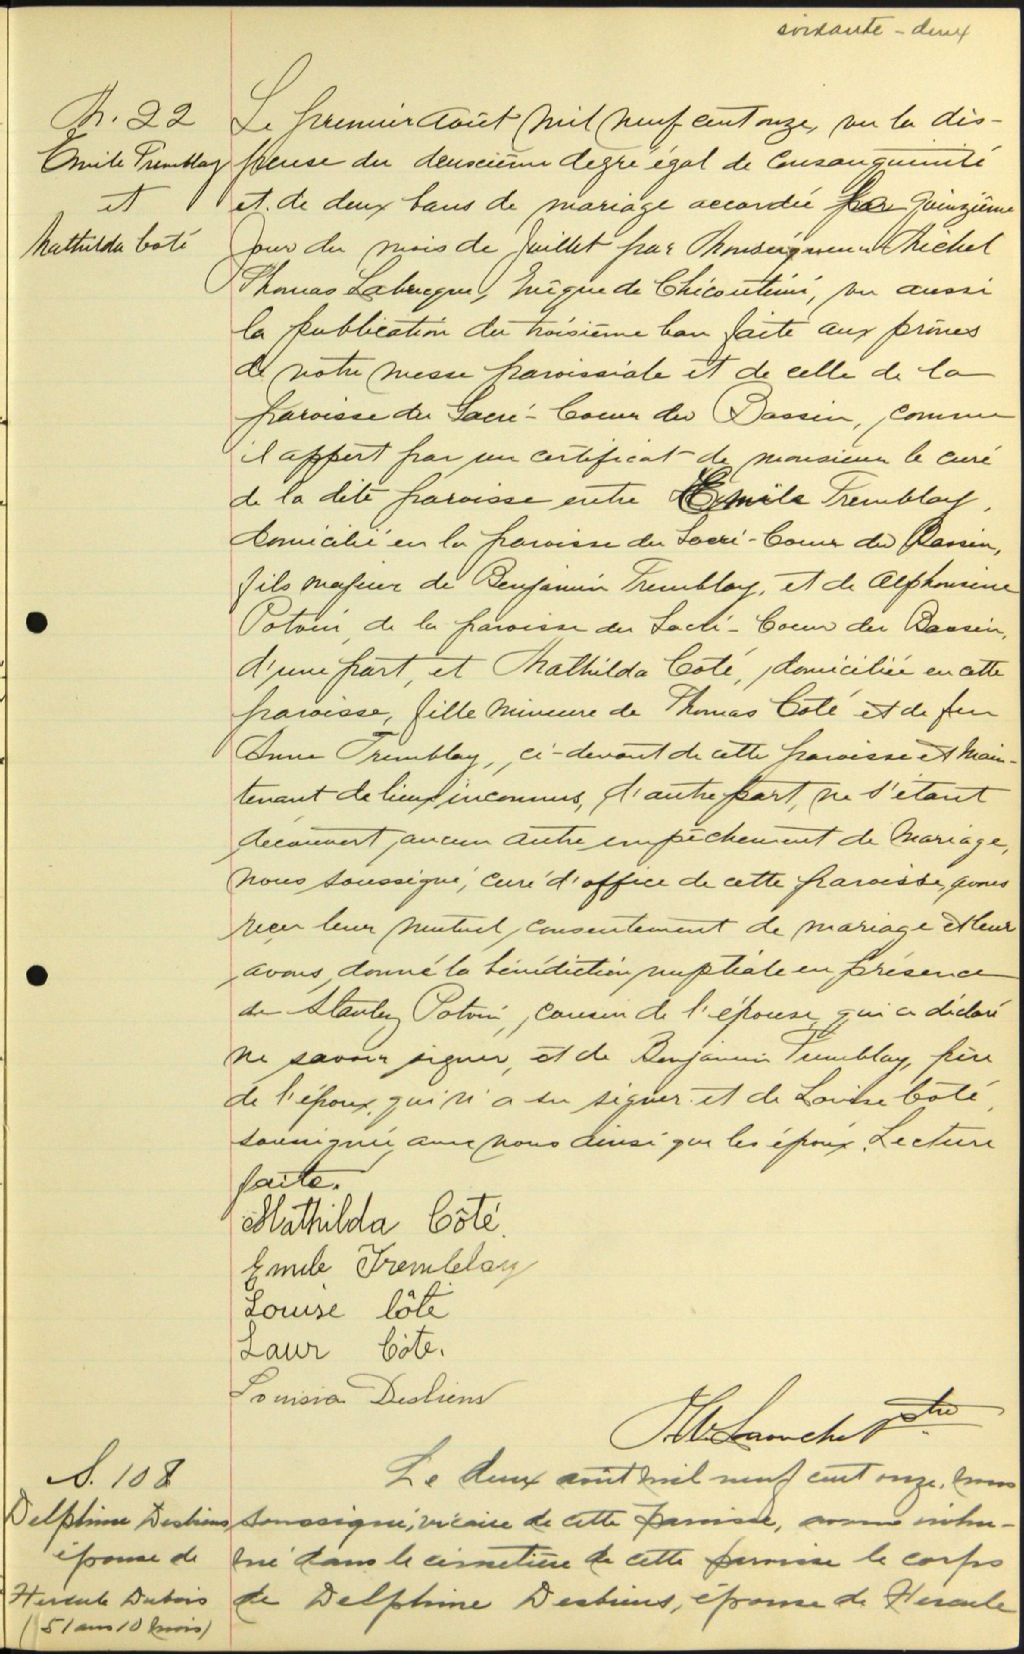 soixante-deux
M. 22
Emile Tremblay
et
Mathilda Coté
Le premier août mil neuf cent onze, vu la dis-
pense du deuxième degré égal de consanguinité
et de deux bans de mariage accordée par quinzième
jour du mois de Juillet par Monseigneur Michel
Thomas Labrecque, Evêque de Chicoutimi, vu aussi
la publication du troisième ban faite aux prônes
de notre messe paroissiale et de celle de la
paroisse du Sacré-Coeur du Bassin, comme
il appert par un certificat de monsieur le curé
de la dite paroisse entre Emile Tremblay,
domicilié en la paroisse du Sacré-Coeur du Bassin,
fils majeur de Benjamin Tremblay, et de Alphonsine
Potvin, de la paroisse du Sacré-Coeur du Bassin,
d'une part, et Mathilda Coté, domiciliée en cette
paroisse, fille mineure de Thomas Coté et de feu
Anna Tremblay, ci-devant de cette paroisse et main-
tenant de lieux inconnus, d'autre part, ne s'étant
découvert aucun autre empêchement de mariage,
nous soussigné, curé d'office de cette paroisse, avons
reçu leur mutuel consentement de mariage et leur
avons donné la bénédiction nuptiale en présence
de Stanley Potvin, cousin de l'épouse, qui a déclaré
ne savoir signer, et de Benjamin Tremblay, père
de l'époux, qui n'a su signer et de Louise Coté,
soussignée avec nous ainsi que les époux. Lecture
faite.
Mathilda Côté
Emile Tremblay
Louise Côté
Laur Côte.
Louisia Desbiens
Larouche Ptre
S. 108
Delphine Desbiens
épouse de
Hercule Dubois
(51 ans 10 mois)
Le deux août mil neuf cent onze, nous
soussigné, vicaire de cette paroisse, avons inhu-
mé dans le cimetière de cette paroisse le corps
de Delphine Desbiens, épouse de Hercule